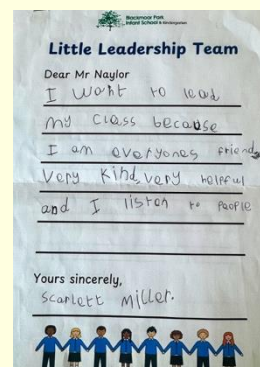 Blackmoor Park
Infant School & Kindergarten
Little Leadership Team
Dear Mr Naylor
I want to lead
my class because
I am everyones friend,
very kind, very helpful
and I listen to people
Yours sincerely,
Scarlett Miller.